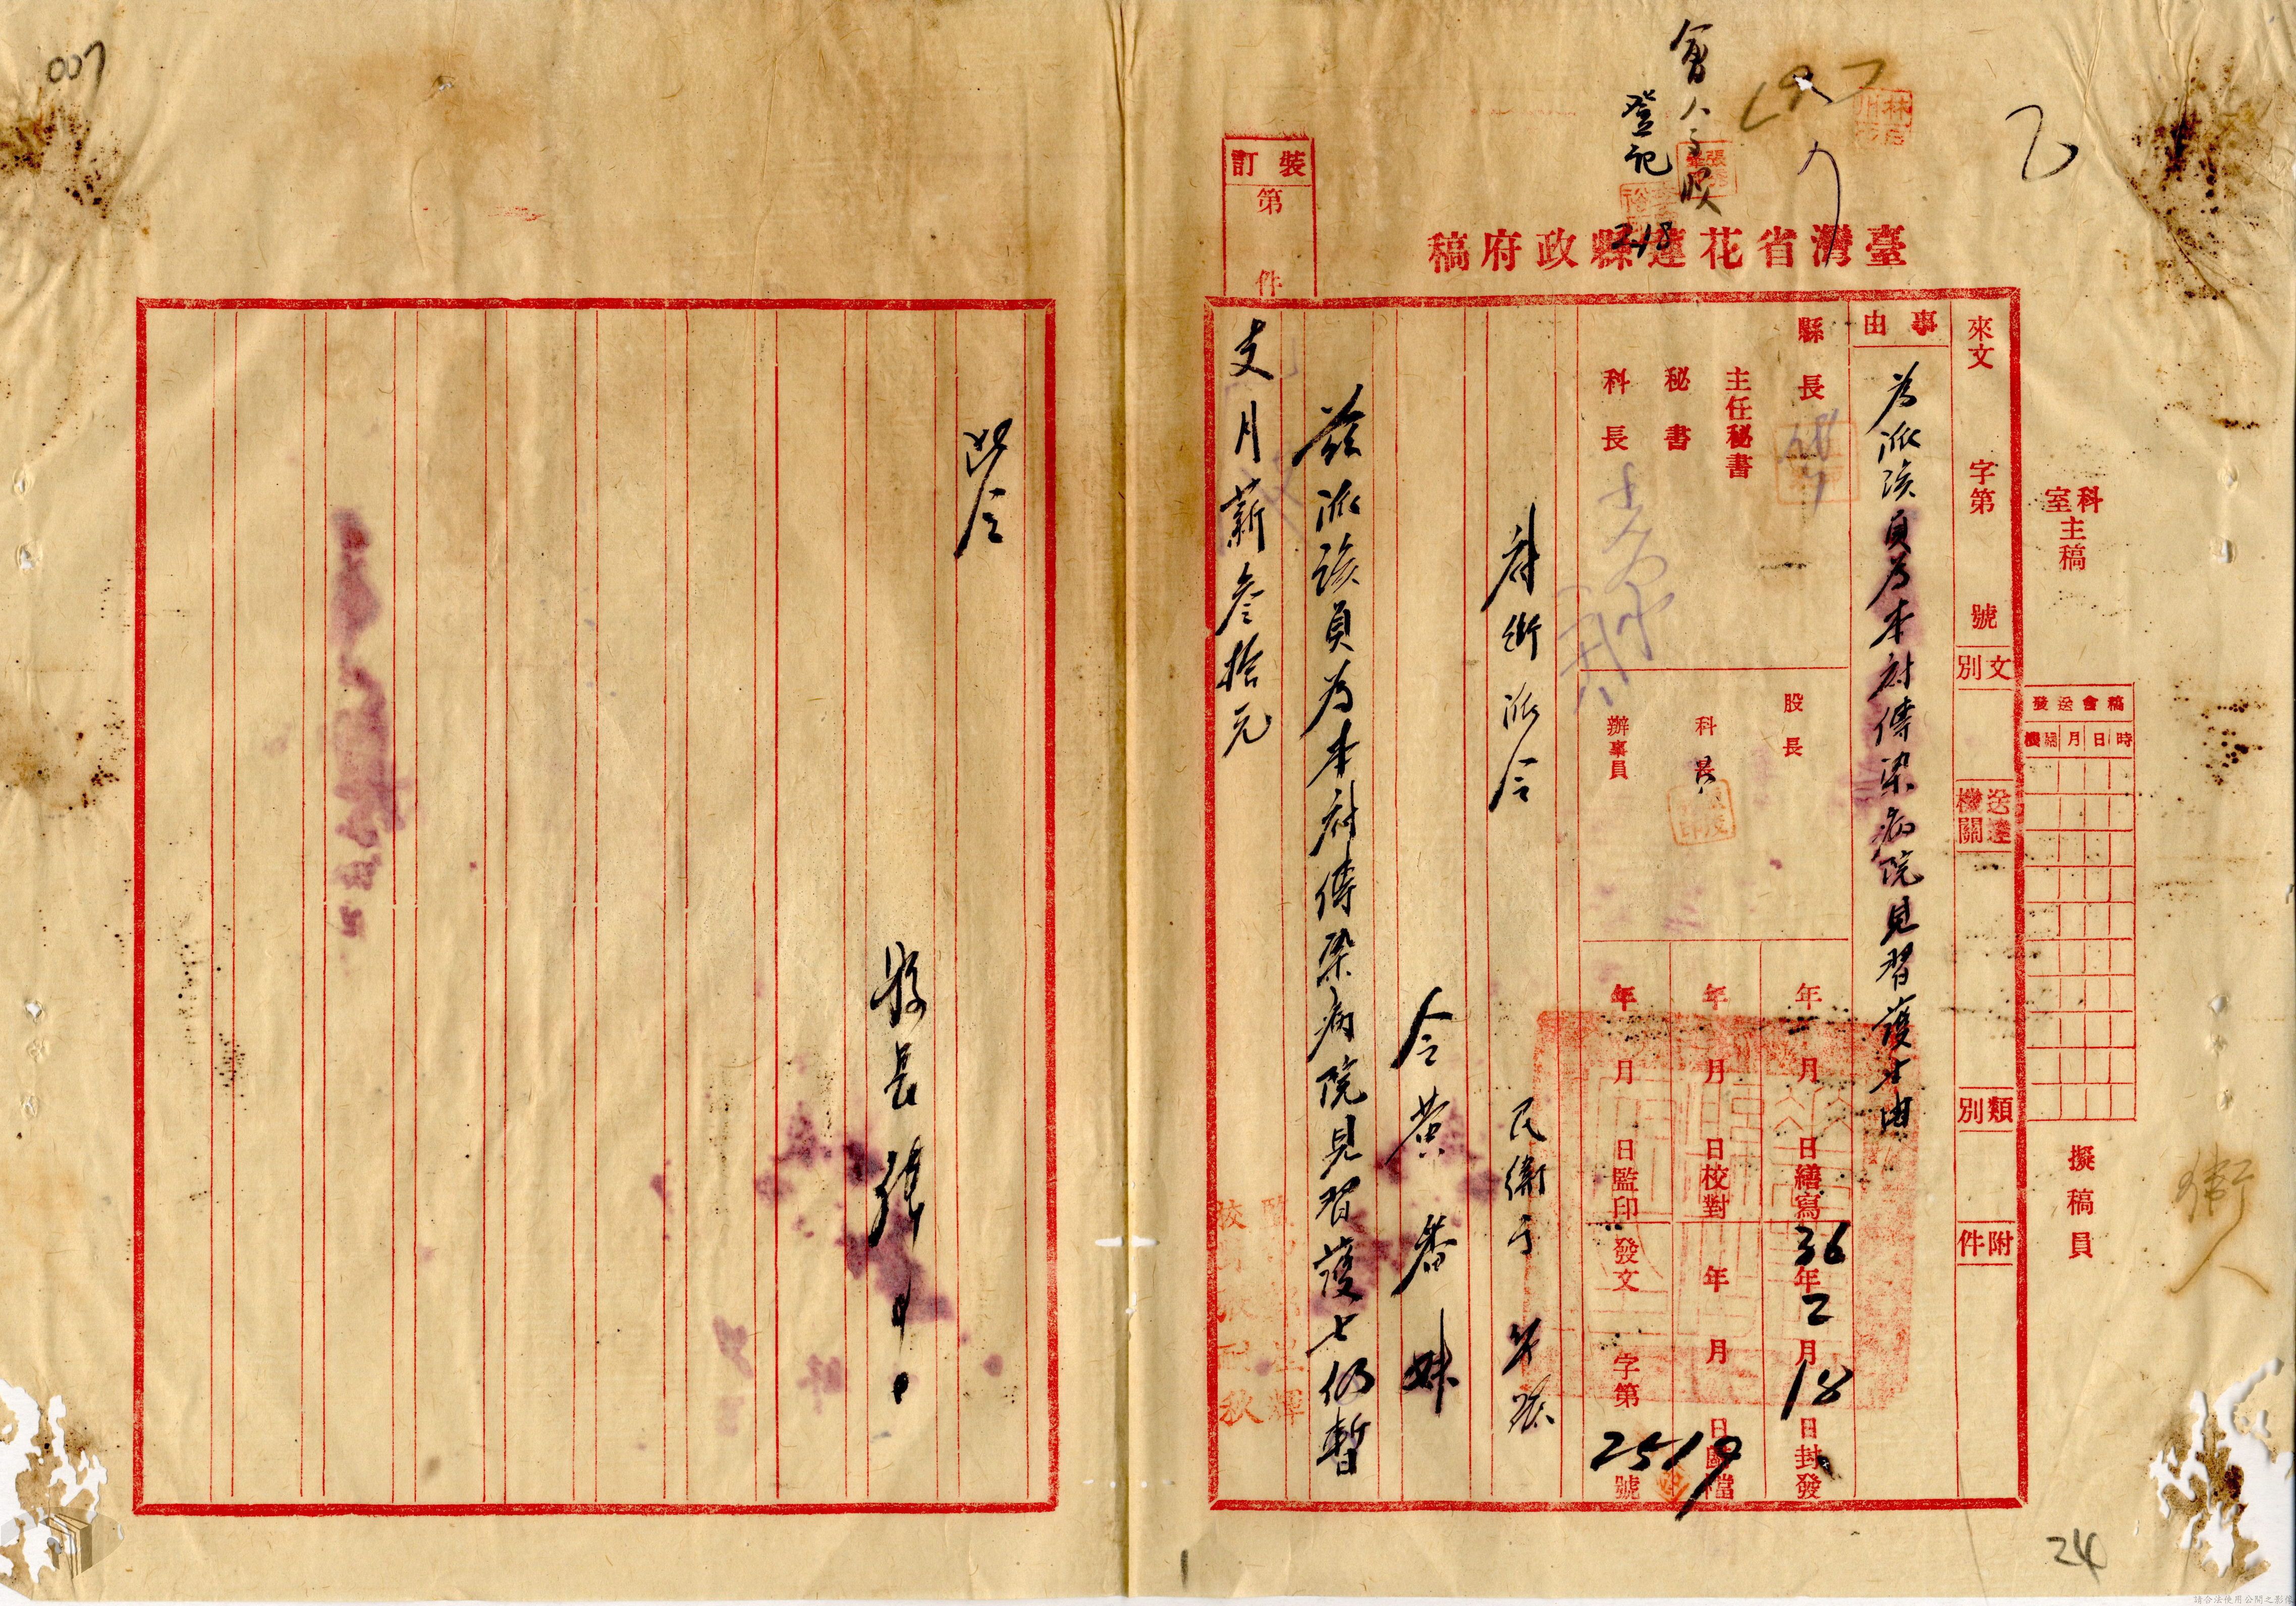 007
會人事股
登記
2.18
乙
裝訂
第 件
臺灣省花蓮縣政府稿
科室主稿
擬稿員
稿會送發
時日月
來文 字第 號
文別
送達機關
類別
附件
事由
為派該員為本府傳染病院見習護士由
縣長
主任秘書
秘書
科長
股長
科員
辦事員
年 月 日繕寫
年 月 日校對
年 月 日監印
36年2月18日封發
年 月 日歸檔
發文 字第2519號
府銜派令
民衛子 第 號
令黃番妹
茲派該員為本府傳染病院見習護士仍暫
支月薪叁拾元
此令
縣長張
24
1
請合法使用公開之影像